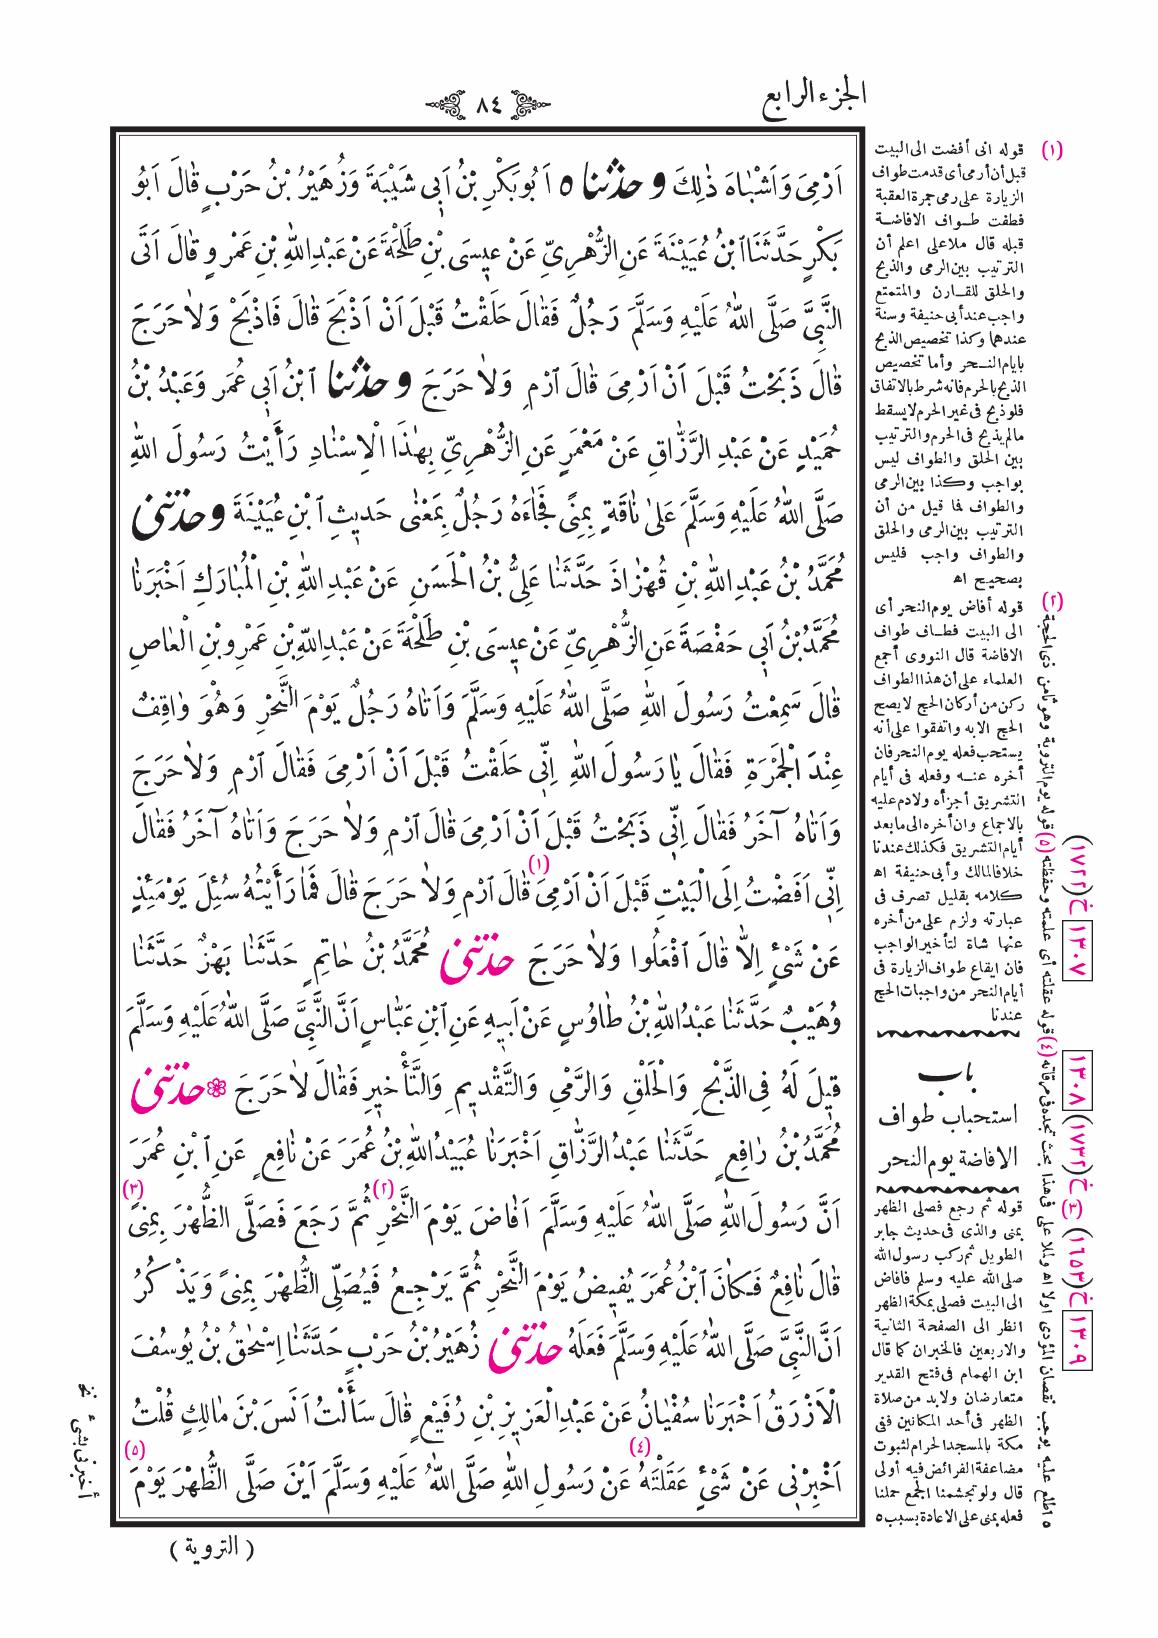 الجزء الرابع
٨٤
اَرْمِىَ وَاَشْبٰاهَ ذٰلِكَ وحدثنا ٥ اَبُوبَكْرِ بْنُ اَبِى شَيْبَةَ وَزُهَيْرُ بْنُ حَرْبٍ قٰالَ اَبُو
بَكْرٍ حَدَّثَنَا ابْنُ عُيَيْنَةَ عَنِ الزُّهْرِىِّ عَنْ عيسَى بْنِ طَلْحَةَ عَنْ عَبْدِ اللّٰهِ بْنِ عَمْرٍو قٰالَ اَتَى
النَّبِىَّ صَلَّى اللّٰهُ عَلَيْهِ وَسَلَّمَ رَجُلٌ فَقٰالَ حَلَقْتُ قَبْلَ اَنْ اَذْبَحَ قٰالَ فَاذْبَحْ وَلاٰ حَرَجَ
قٰالَ ذَبَحْتُ قَبْلَ اَنْ اَرْمِىَ قٰالَ ارْمِ وَلاٰ حَرَجَ وحدثنا ابْنُ اَبِى عُمَرَ وَعَبْدُ بْنُ
حُمَيْدٍ عَنْ عَبْدِ الرَّزّٰاقِ عَنْ مَعْمَرٍ عَنِ الزُّهْرِىِّ بِهٰذَا الْاِسْنٰادِ رَأَيْتُ رَسُولَ اللّٰهِ
صَلَّى اللّٰهُ عَلَيْهِ وَسَلَّمَ عَلىٰ نٰاقَةٍ بِمِنًى فَجٰاءَهُ رَجُلٌ بِمَعْنٰى حَديثِ ابْنِ عُيَيْنَةَ وحدثنى
مُحَمَّدُ بْنُ عَبْدِ اللّٰهِ بْنِ قُهْزٰاذَ حَدَّثَنٰا عَلِىُّ بْنُ الْحَسَنِ عَنْ عَبْدِ اللّٰهِ بْنِ الْمُبٰارَكِ اَخْبَرَنٰا
مُحَمَّدُ بْنُ اَبِى حَفْصَةَ عَنِ الزُّهْرِىِّ عَنْ عيسَى بْنِ طَلْحَةَ عَنْ عَبْدِ اللّٰهِ بْنِ عَمْرِو بْنِ الْعٰاصِ
قٰالَ سَمِعْتُ رَسُولَ اللّٰهِ صَلَّى اللّٰهُ عَلَيْهِ وَسَلَّمَ وَاَتٰاهُ رَجُلٌ يَوْمَ النَّحْرِ وَهُوَ وٰاقِفٌ
عِنْدَ الْجَمْرَةِ فَقٰالَ يٰا رَسُولَ اللّٰهِ اِنّى حَلَقْتُ قَبْلَ اَنْ اَرْمِىَ فَقٰالَ ارْمِ وَلاٰ حَرَجَ
وَاَتٰاهُ آخَرُ فَقٰالَ اِنّى ذَبَحْتُ قَبْلَ اَنْ اَرْمِىَ قٰالَ ارْمِ وَلاٰ حَرَجَ وَاَتٰاهُ آخَرُ فَقٰالَ
(١)
اِنّى اَفَضْتُ اِلَى الْبَيْتِ قَبْلَ اَنْ اَرْمِىَ قٰالَ ارْمِ وَلاٰ حَرَجَ قٰالَ فَمٰا رَأَيْتُهُ سُئِلَ يَوْمَئِذٍ
عَنْ شَىْءٍ اِلاّٰ قٰالَ افْعَلُوا وَلاٰ حَرَجَ حدثنى مُحَمَّدُ بْنُ حٰاتِمٍ حَدَّثَنٰا بَهْزٌ حَدَّثَنٰا
وُهَيْبٌ حَدَّثَنٰا عَبْدُ اللّٰهِ بْنُ طٰاوُسٍ عَنْ اَبيهِ عَنِ ابْنِ عَبّٰاسٍ اَنَّ النَّبِىَّ صَلَّى اللّٰهُ عَلَيْهِ وَسَلَّمَ
قيلَ لَهُ فِى الذَّبْحِ وَالْحَلْقِ وَالرَّمْىِ وَالتَّقْديمِ وَالتَّأْخيرِ فَقٰالَ لاٰ حَرَجَ ❁ حدثنى
مُحَمَّدُ بْنُ رٰافِعٍ حَدَّثَنٰا عَبْدُ الرَّزّٰاقِ اَخْبَرَنٰا عُبَيْدُ اللّٰهِ بْنُ عُمَرَ عَنْ نٰافِعٍ عَنِ ابْنِ عُمَرَ
(٢) (٣)
اَنَّ رَسُولَ اللّٰهِ صَلَّى اللّٰهُ عَلَيْهِ وَسَلَّمَ اَفٰاضَ يَوْمَ النَّحْرِ ثُمَّ رَجَعَ فَصَلَّى الظُّهْرَ بِمِنًى
قٰالَ نٰافِعٌ فَكٰانَ ابْنُ عُمَرَ يُفيضُ يَوْمَ النَّحْرِ ثُمَّ يَرْجِعُ فَيُصَلِّى الظُّهْرَ بِمِنًى وَيَذْكُرُ
اَنَّ النَّبِىَّ صَلَّى اللّٰهُ عَلَيْهِ وَسَلَّمَ فَعَلَهُ حدثنى زُهَيْرُ بْنُ حَرْبٍ حَدَّثَنٰا اِسْحٰقُ بْنُ يُوسُفَ
الْاَزْرَقُ اَخْبَرَنٰا سُفْيٰانُ عَنْ عَبْدِ الْعَزيزِ بْنِ رُفَيْعٍ قٰالَ سَأَلْتُ اَنَسَ بْنَ مٰالِكٍ قُلْتُ
(٤) (٥)
اَخْبِرْنى عَنْ شَىْءٍ عَقَلْتَهُ عَنْ رَسُولِ اللّٰهِ صَلَّى اللّٰهُ عَلَيْهِ وَسَلَّمَ اَيْنَ صَلَّى الظُّهْرَ يَوْمَ
( التروية )
(١) قوله انى أفضت الى البيت
قبل أن أرمى أى قدمت طواف
الزيارة على رمى جمرة العقبة
فطفت طواف الافاضة
قبله قال ملاعلى اعلم أن
الترتيب بين الرمى والذبح
والحلق للقارن والمتمتع
واجب عند أبى حنيفة وسنة
عندهما وكذا تخصيص الذبح
بايام النحر وأما تخصيص
الذبح بالحرم فانه شرط بالاتفاق
فلو ذبح فى غير الحرم لا يسقط
مالم يذبح فى الحرم والترتيب
بين الحلق والطواف ليس
بواجب وكذا بين الرمى
والطواف فما قيل من أن
الترتيب بين الرمى والحلق
والطواف واجب فليس
بصحيح اه
(٢) قوله أفاض يوم النحر أى
الى البيت فطاف طواف
الافاضة قال النووى أجمع
العلماء على أن هذا الطواف
ركن من أركان الحج لا يصح
الحج الا به واتفقوا على أنه
يستحب فعله يوم النحر فان
أخره عنه وفعله فى أيام
التشريق أجزأه ولا دم عليه
بالاجماع وان أخره الى ما بعد
أيام التشريق فكذلك عندنا
خلافا لمالك وأبى حنيفة اه
كلامه بقليل تصرف فى
عبارته ولزم على من أخره
عنها شاة لتأخير الواجب
فان ايقاع طواف الزيارة فى
أيام النحر من واجبات الحج
عندنا
باب
استحباب طواف
الافاضة يوم النحر
(٣) قوله ثم رجع فصلى الظهر
بمنى والذى فى حديث جابر
الطويل ثم ركب رسول الله
صلى الله عليه وسلم فافاض
الى البيت فصلى بمكة الظهر
انظر الى الصفحة الثانية
والاربعين فالخبران كما قال
ابن الهمام فى فتح القدير
متعارضان ولا بد من صلاة
الظهر فى أحد المكانين ففى
مكة بالمسجد الحرام لثبوت
مضاعفة الفرائض فيه أولى
قال ولو تجشمنا الجمع حملنا
فعله بمنى على الاعادة بسبب ٥
٥ اطلع عليه يوجب نقصان المؤدى اولا اه ولملا على فى هذا بحث تجده فى مرقاته (٤) قوله عقلته أى علمته وحفظته (٥) قوله يوم التروية وهو ثامن ذى الحجة
خ(١٧٢٢)
١٣٠٧
١٣٠٨
خ(١٧٣٢)
خ(١٦٥٣)
١٣٠٩
أخبرنى بشىء نخ